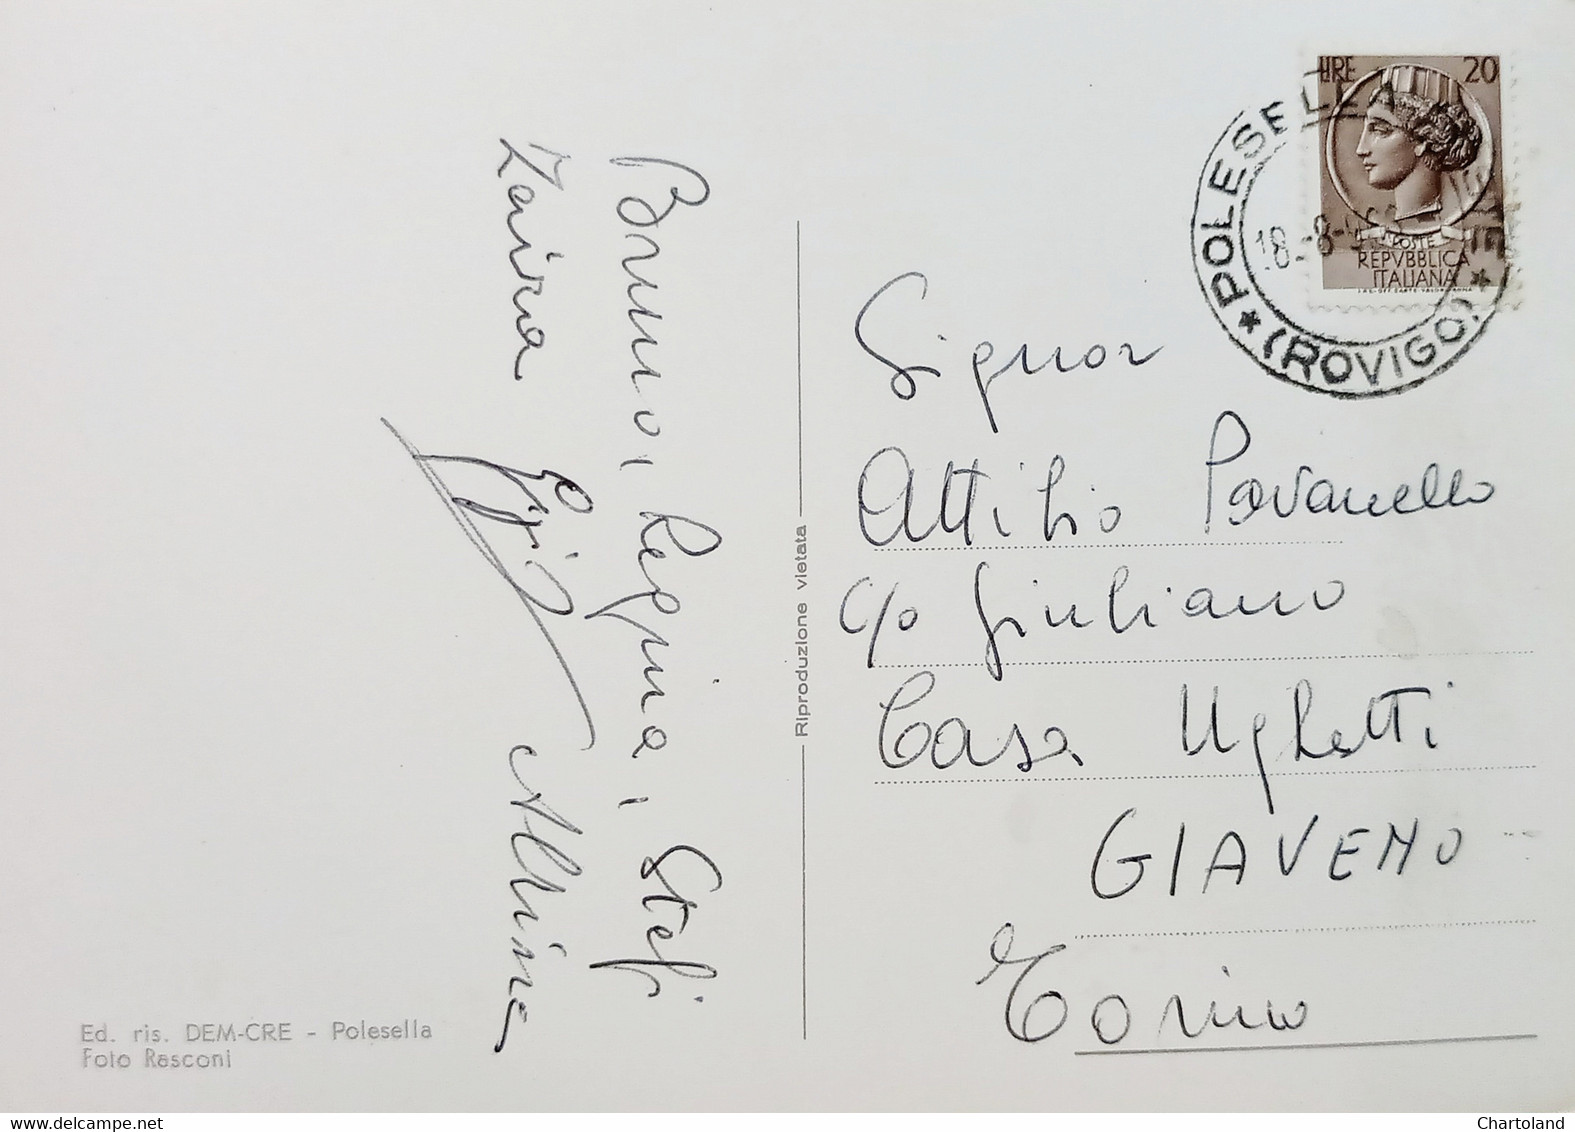 LIRE 20
POSTE
REPVBBLICA
ITALIANA
POLESELLA
* (ROVIGO) *
18.-8-
Signor
Attilio Pavanello
c/o Giuliano
Casa Ughetti
GIAVENO
Torino
Bruno, Regina, Stefi
Zaira Gigi Albina
Riproduzione vietata
Ed. ris. DEM-CRE - Polesella
Foto Rasconi
delcampe.net
Chartoland